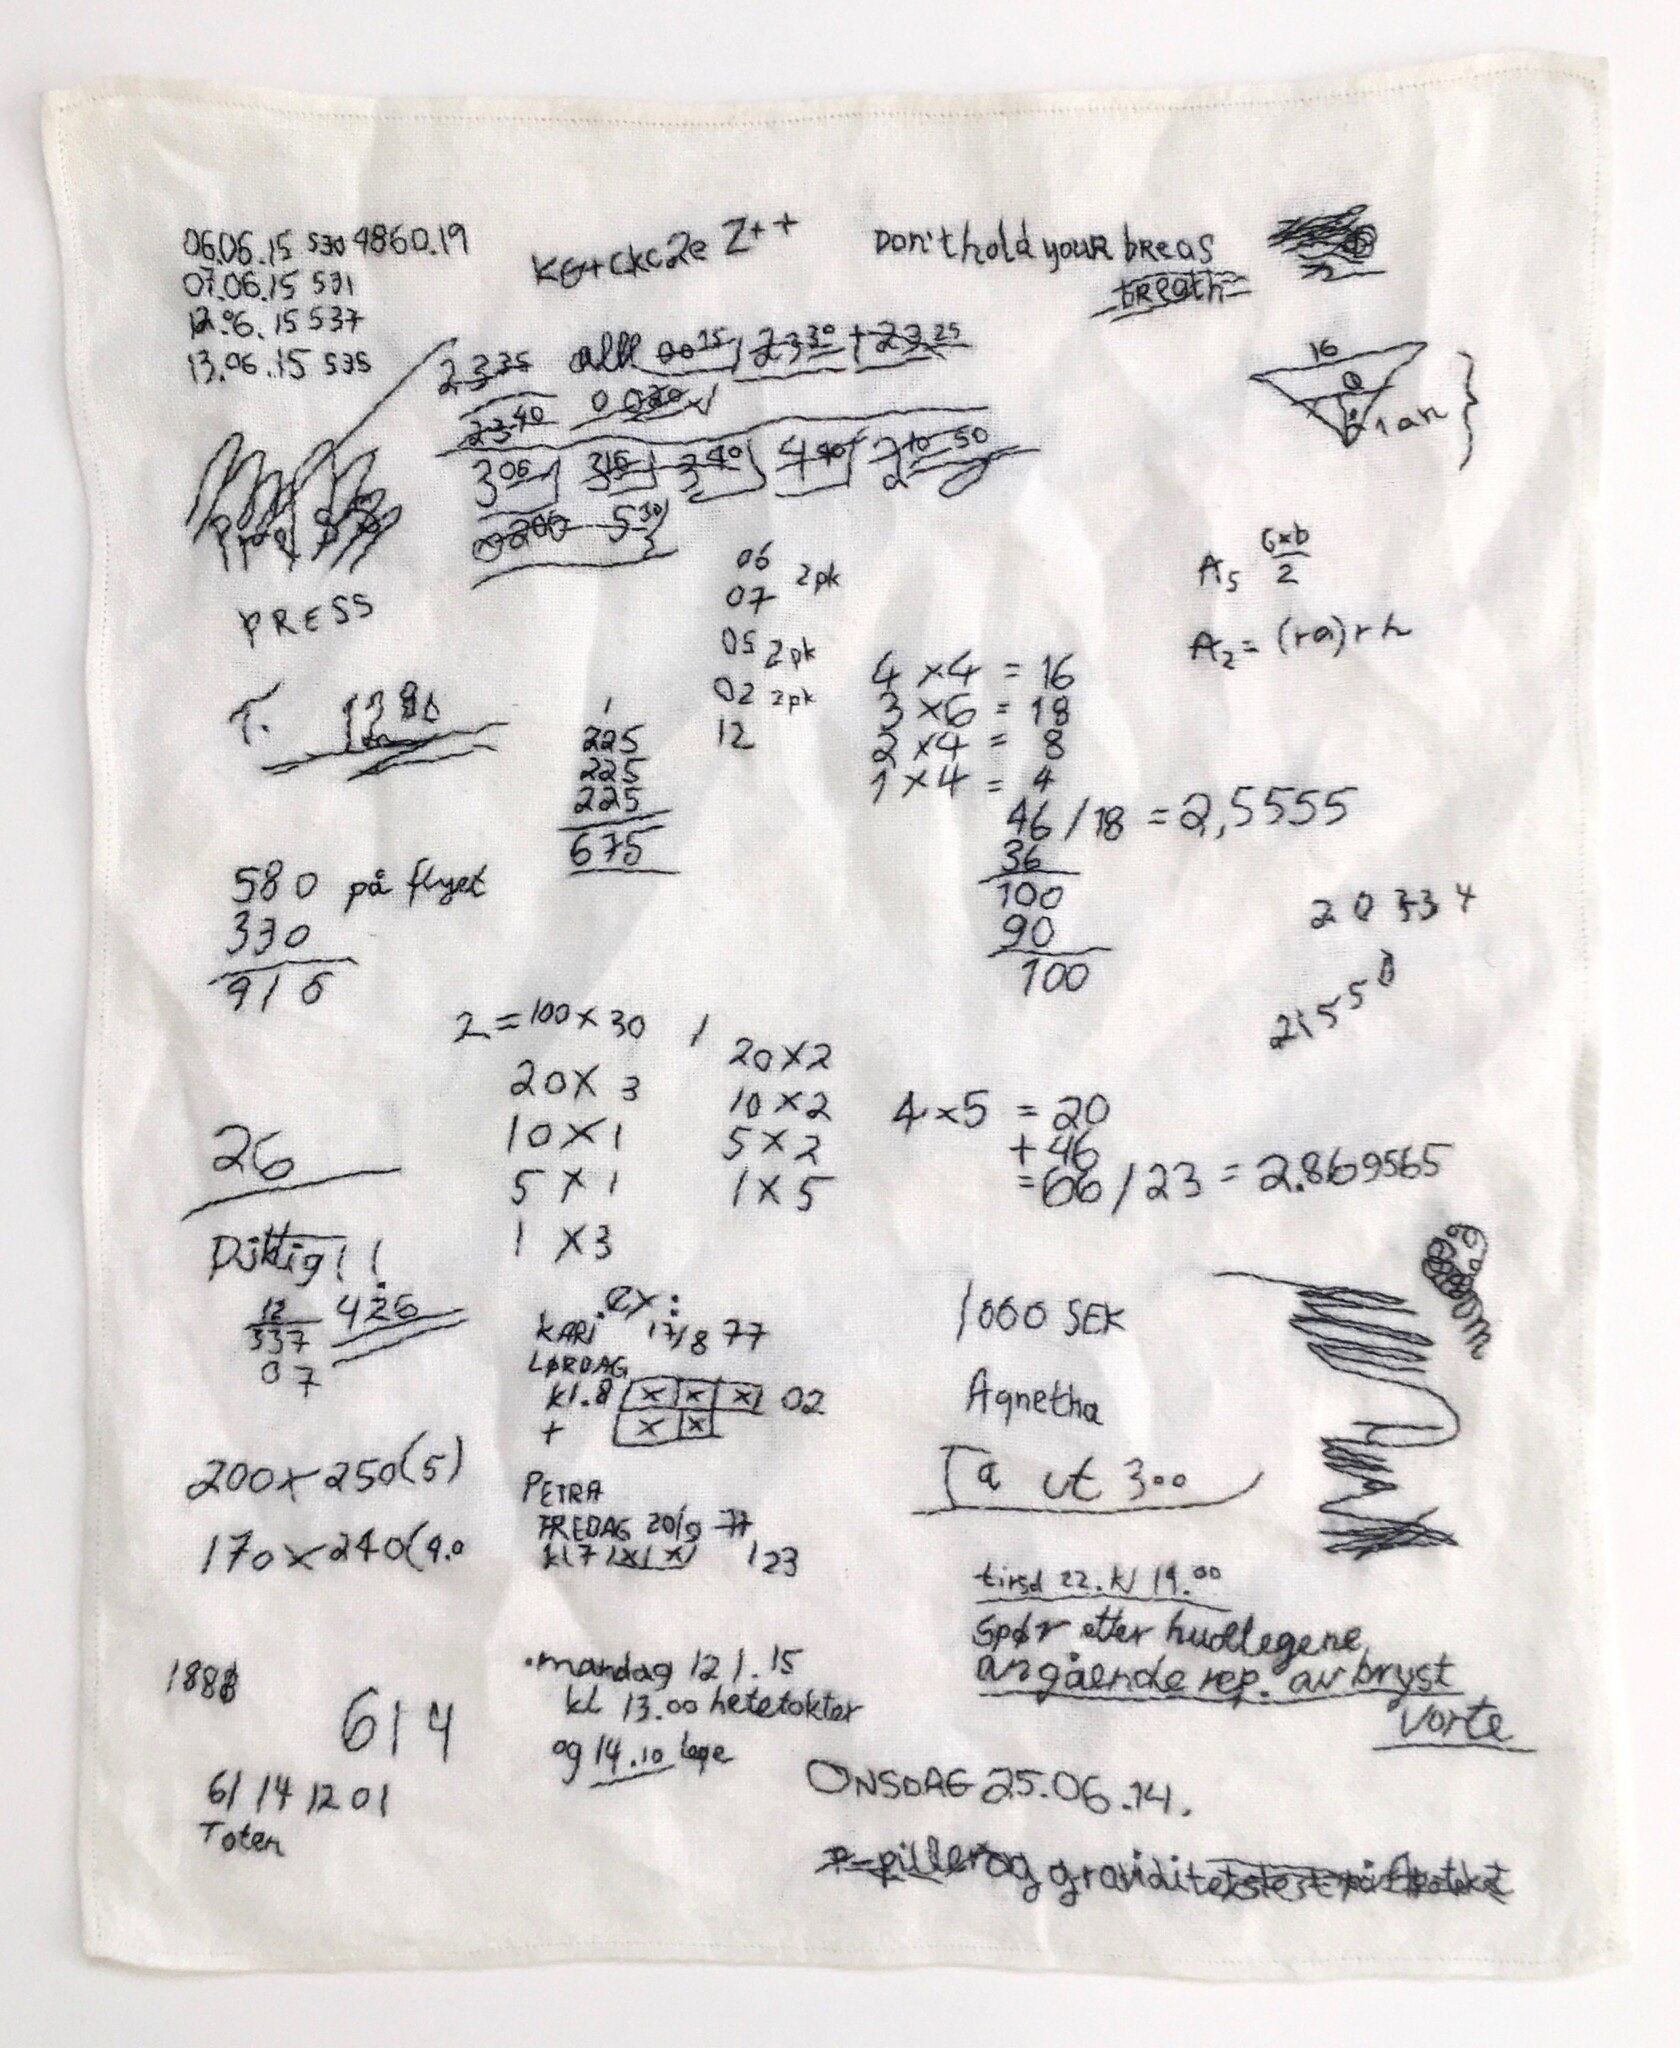 06.06.15 530 4860.19
07.06.15 531
12.06.15 537
13.06.15 535
Z++
Don't hold your breas
breath
23 35
23 40
00 15 23 30 + 23 25
3 05 3 15 3 40 4 40
5 30
PRESS
T.
16
06 2pk
07
05 2pk
02 2pk
12
225
225
225
675
4 x 4 = 16
3 x 6 = 18
2 x 4 = 8
1 x 4 = 4
46 / 18 = 2,5555
36
100
90
100
A2 = (ra)rh
580 på flyet
330
916
20334
21550
2 = 100 x 30
20 x 3
10 x 1
5 x 1
1 x 3
1
20 x 2
10 x 2
5 x 2
1 x 5
4 x 5 = 20
+ 46
= 66 / 23 = 2.869565
26
12
337
07
426
200 x 250 (5)
170 x 240 (4.0
ex:
KARI 17/8 77
LØRDAG
kl. 8 x x x 02
+ x x
PETRA
FREDAG 20/9 77
kl 7 x x 123
1000 SEK
Agnetha
Ta ut 300
tirsd 22. kl 19.00
Spør etter hudlegene
angående rep. av bryst
vorte
1888
614
61 14 12 01
Toten
mandag 12 1.15
kl 13.00 hetetokter
og 14.10 lege
ONSDAG 25.06.14.
P-piller og graviditetstest på Apoteket